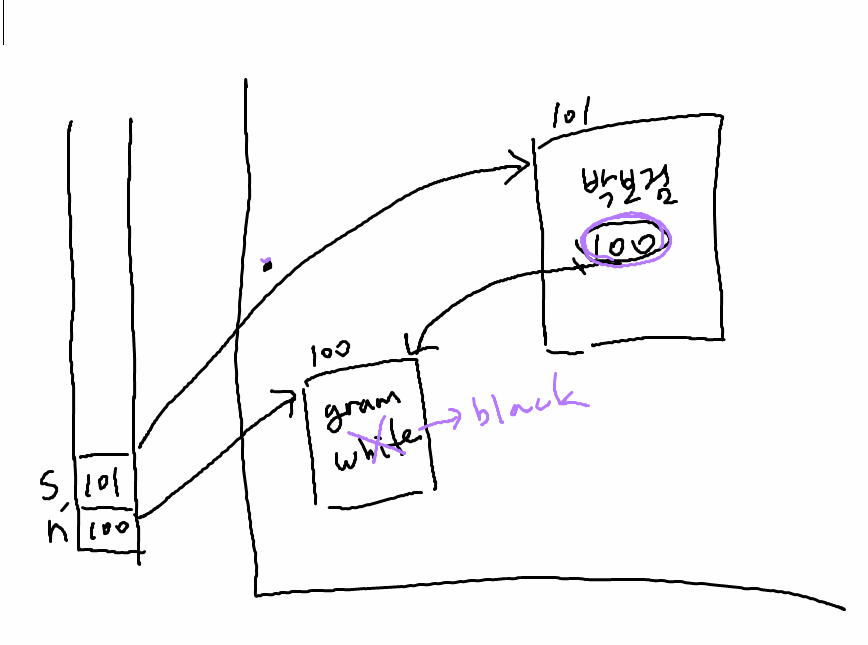 101
박보검
100
100
gram
white → black
s 101
n 100